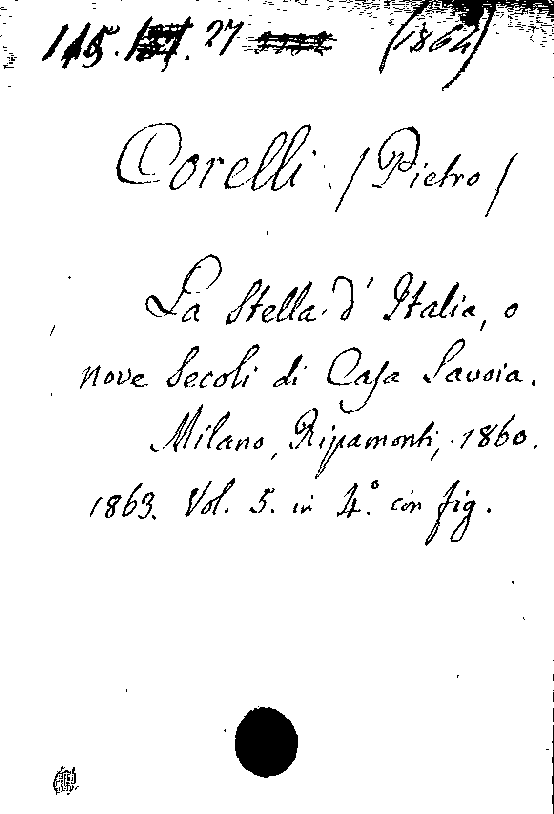 27 (1864)
Corelli / Pietro /
La Stella d' Italia, o
nove Secoli di Casa Savoia.
Milano, Ripamonti, 1860.
1863. Vol. 5. in 4.° con fig.